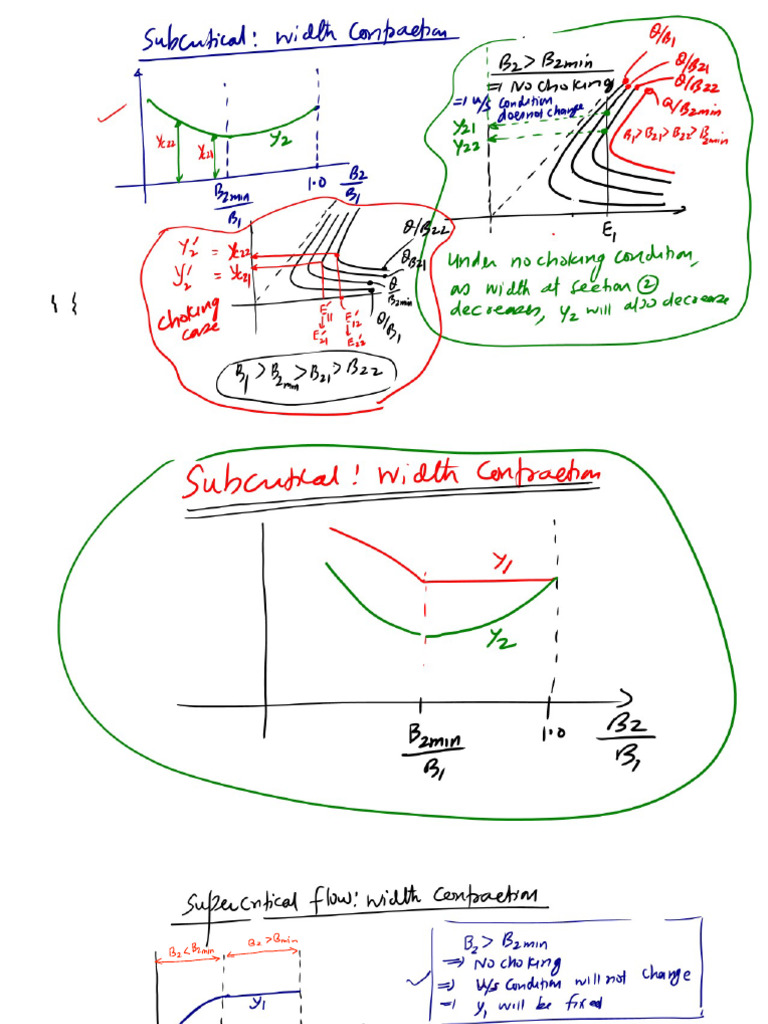 Subcritical: width contraction
B2 > B2min
⇒ No choking
⇒ u/s condition
does not change
Q/B1
Q/B21
Q/B22
Q/B2min
B1 > B21 > B22 > B2min
y21
y22
E1
yc22
yc21
y2
B2min/B1
1.0
B2/B1
Under no choking condition,
as width at section ②
decreases, y2 will also decrease
y2' = yc22
y2' = yc21
choking
case
Q/B22
Q/B21
Q/B2min
Q/B1
E11'
E12'
E21'
E22'
B1 > B2min > B21 > B22
Subcritical: width contraction
y1
y2
B2min/B1
1.0
B2/B1
Supercritical flow: width contraction
B2 < B2min
B2 > Bmin
y1
B2 > B2min
⇒ No choking
⇒ u/s condition will not change
⇒ y1 will be fixed